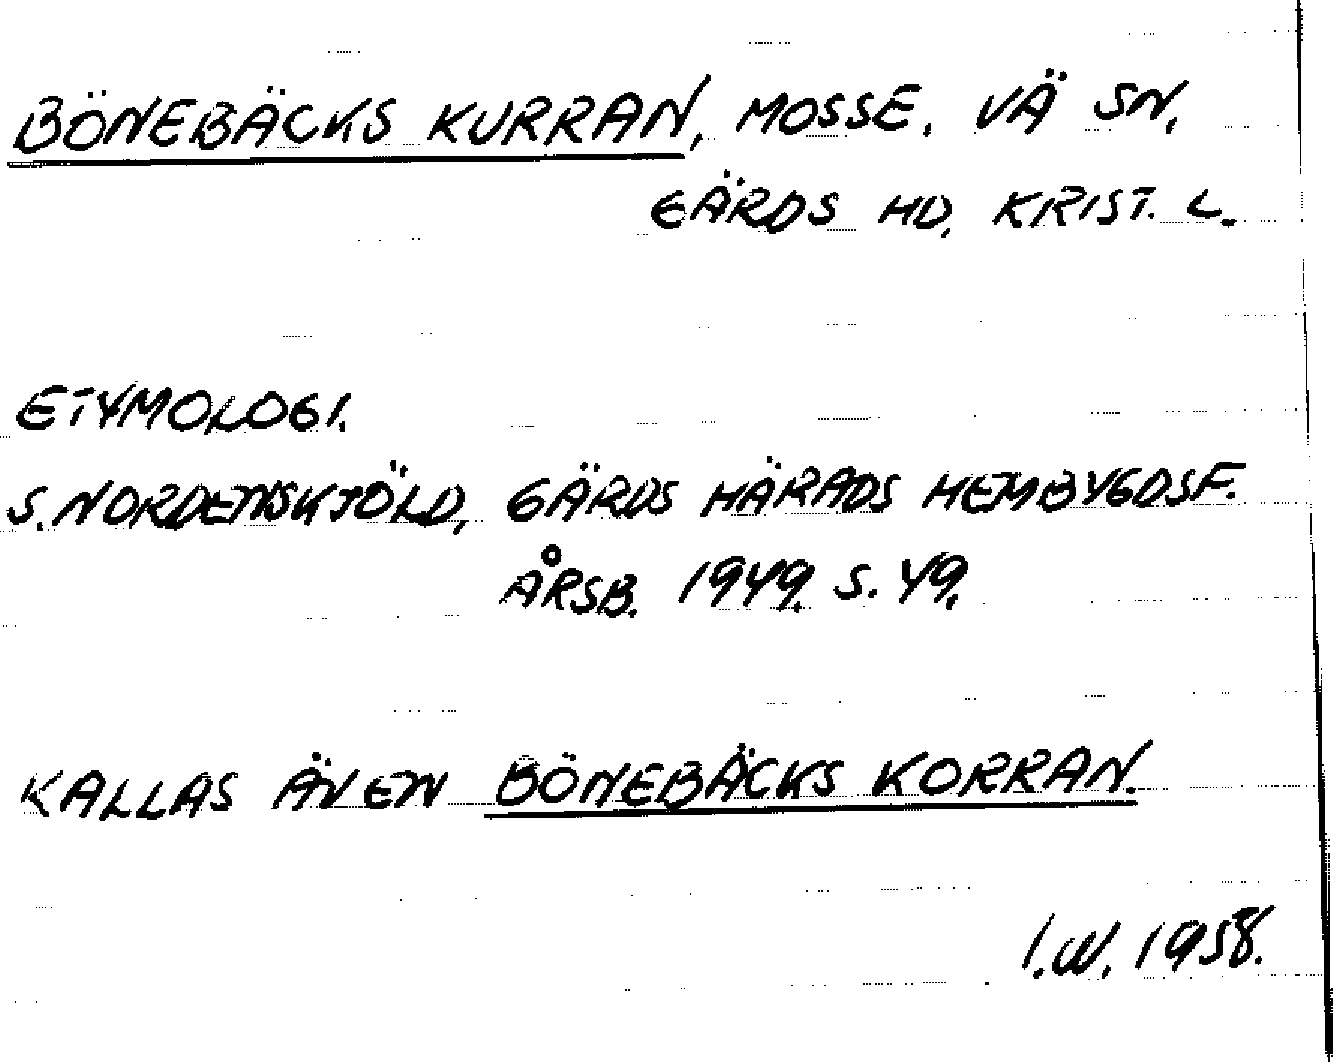 BÖNEBÄCKS KURRAN, MOSSE. VÄ SN.
GÄRDS HD, KRIST. L.
ETYMOLOGI.
S. NORDENSKJÖLD, GÄRDS HÄRADS HEMBYGDSF.
ÅRSB. 1949. S. 49.
KALLAS ÄVEN BÖNEBÄCKS KORRAN.
I.W. 1958.